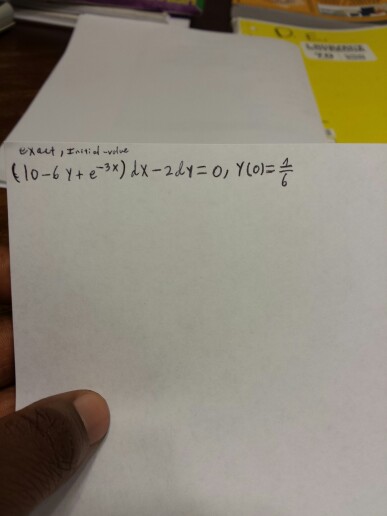 D. E.
Exact, Initial-value
(10-6y+e^{-3x})dx-2dy=0, y(0)=1/6